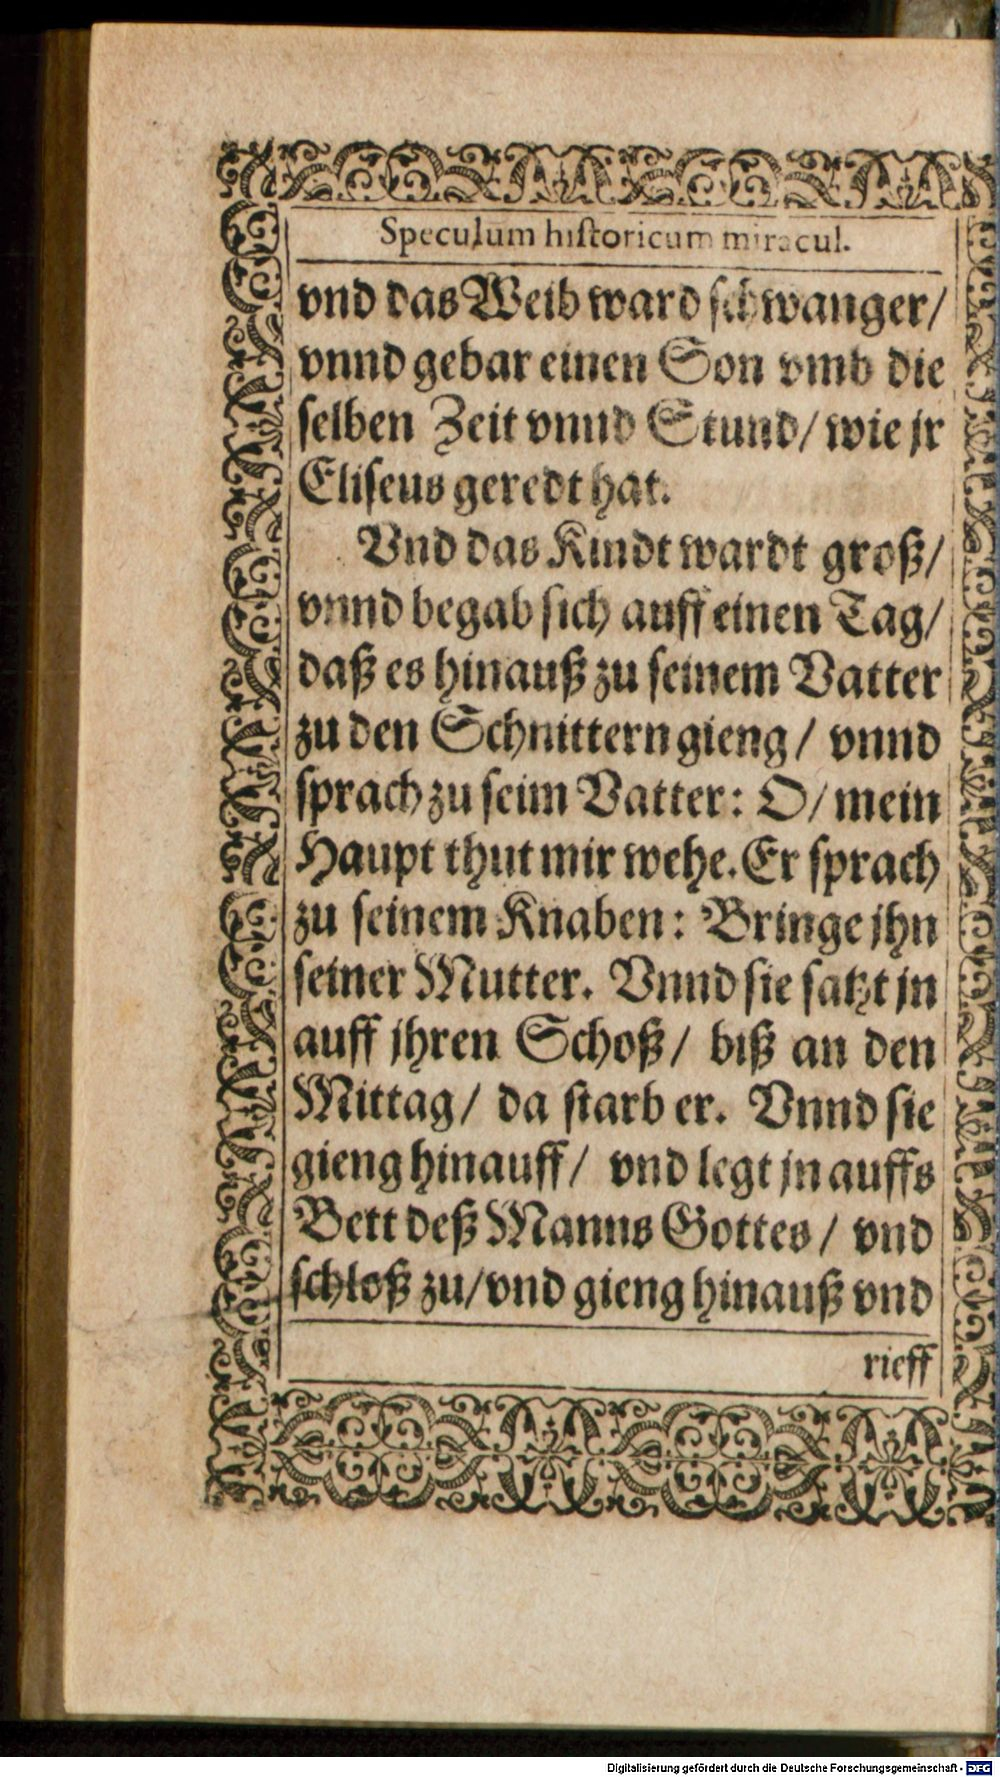 Speculum hiſtoricum miracul.
vnd das Weib ward ſchwanger/
vnnd gebar einen Son vmb die
ſelben Zeit vnnd Stund/ wie jr
Eliſeus geredt hat.
Vnd das Kindt wardt groß/
vnnd begab ſich auff einen Tag/
daß es hinauß zu ſeinem Vatter
zu den Schnittern gieng/ vnnd
ſprach zu ſeim Vatter: O/ mein
Haupt thut mir wehe. Er ſprach
zu ſeinem Knaben: Bringe jhn
ſeiner Mutter. Vnnd ſie ſatzt jn
auff jhren Schoß/ biß an den
Mittag/ da ſtarb er. Vnnd ſie
gieng hinauff/ vnd legt jn auffs
Bett deß Manns Gottes/ vnd
ſchloß zu/ vnd gieng hinauß vnd
rieff
Digitalisierung gefördert durch die Deutsche Forschungsgemeinschaft - DFG